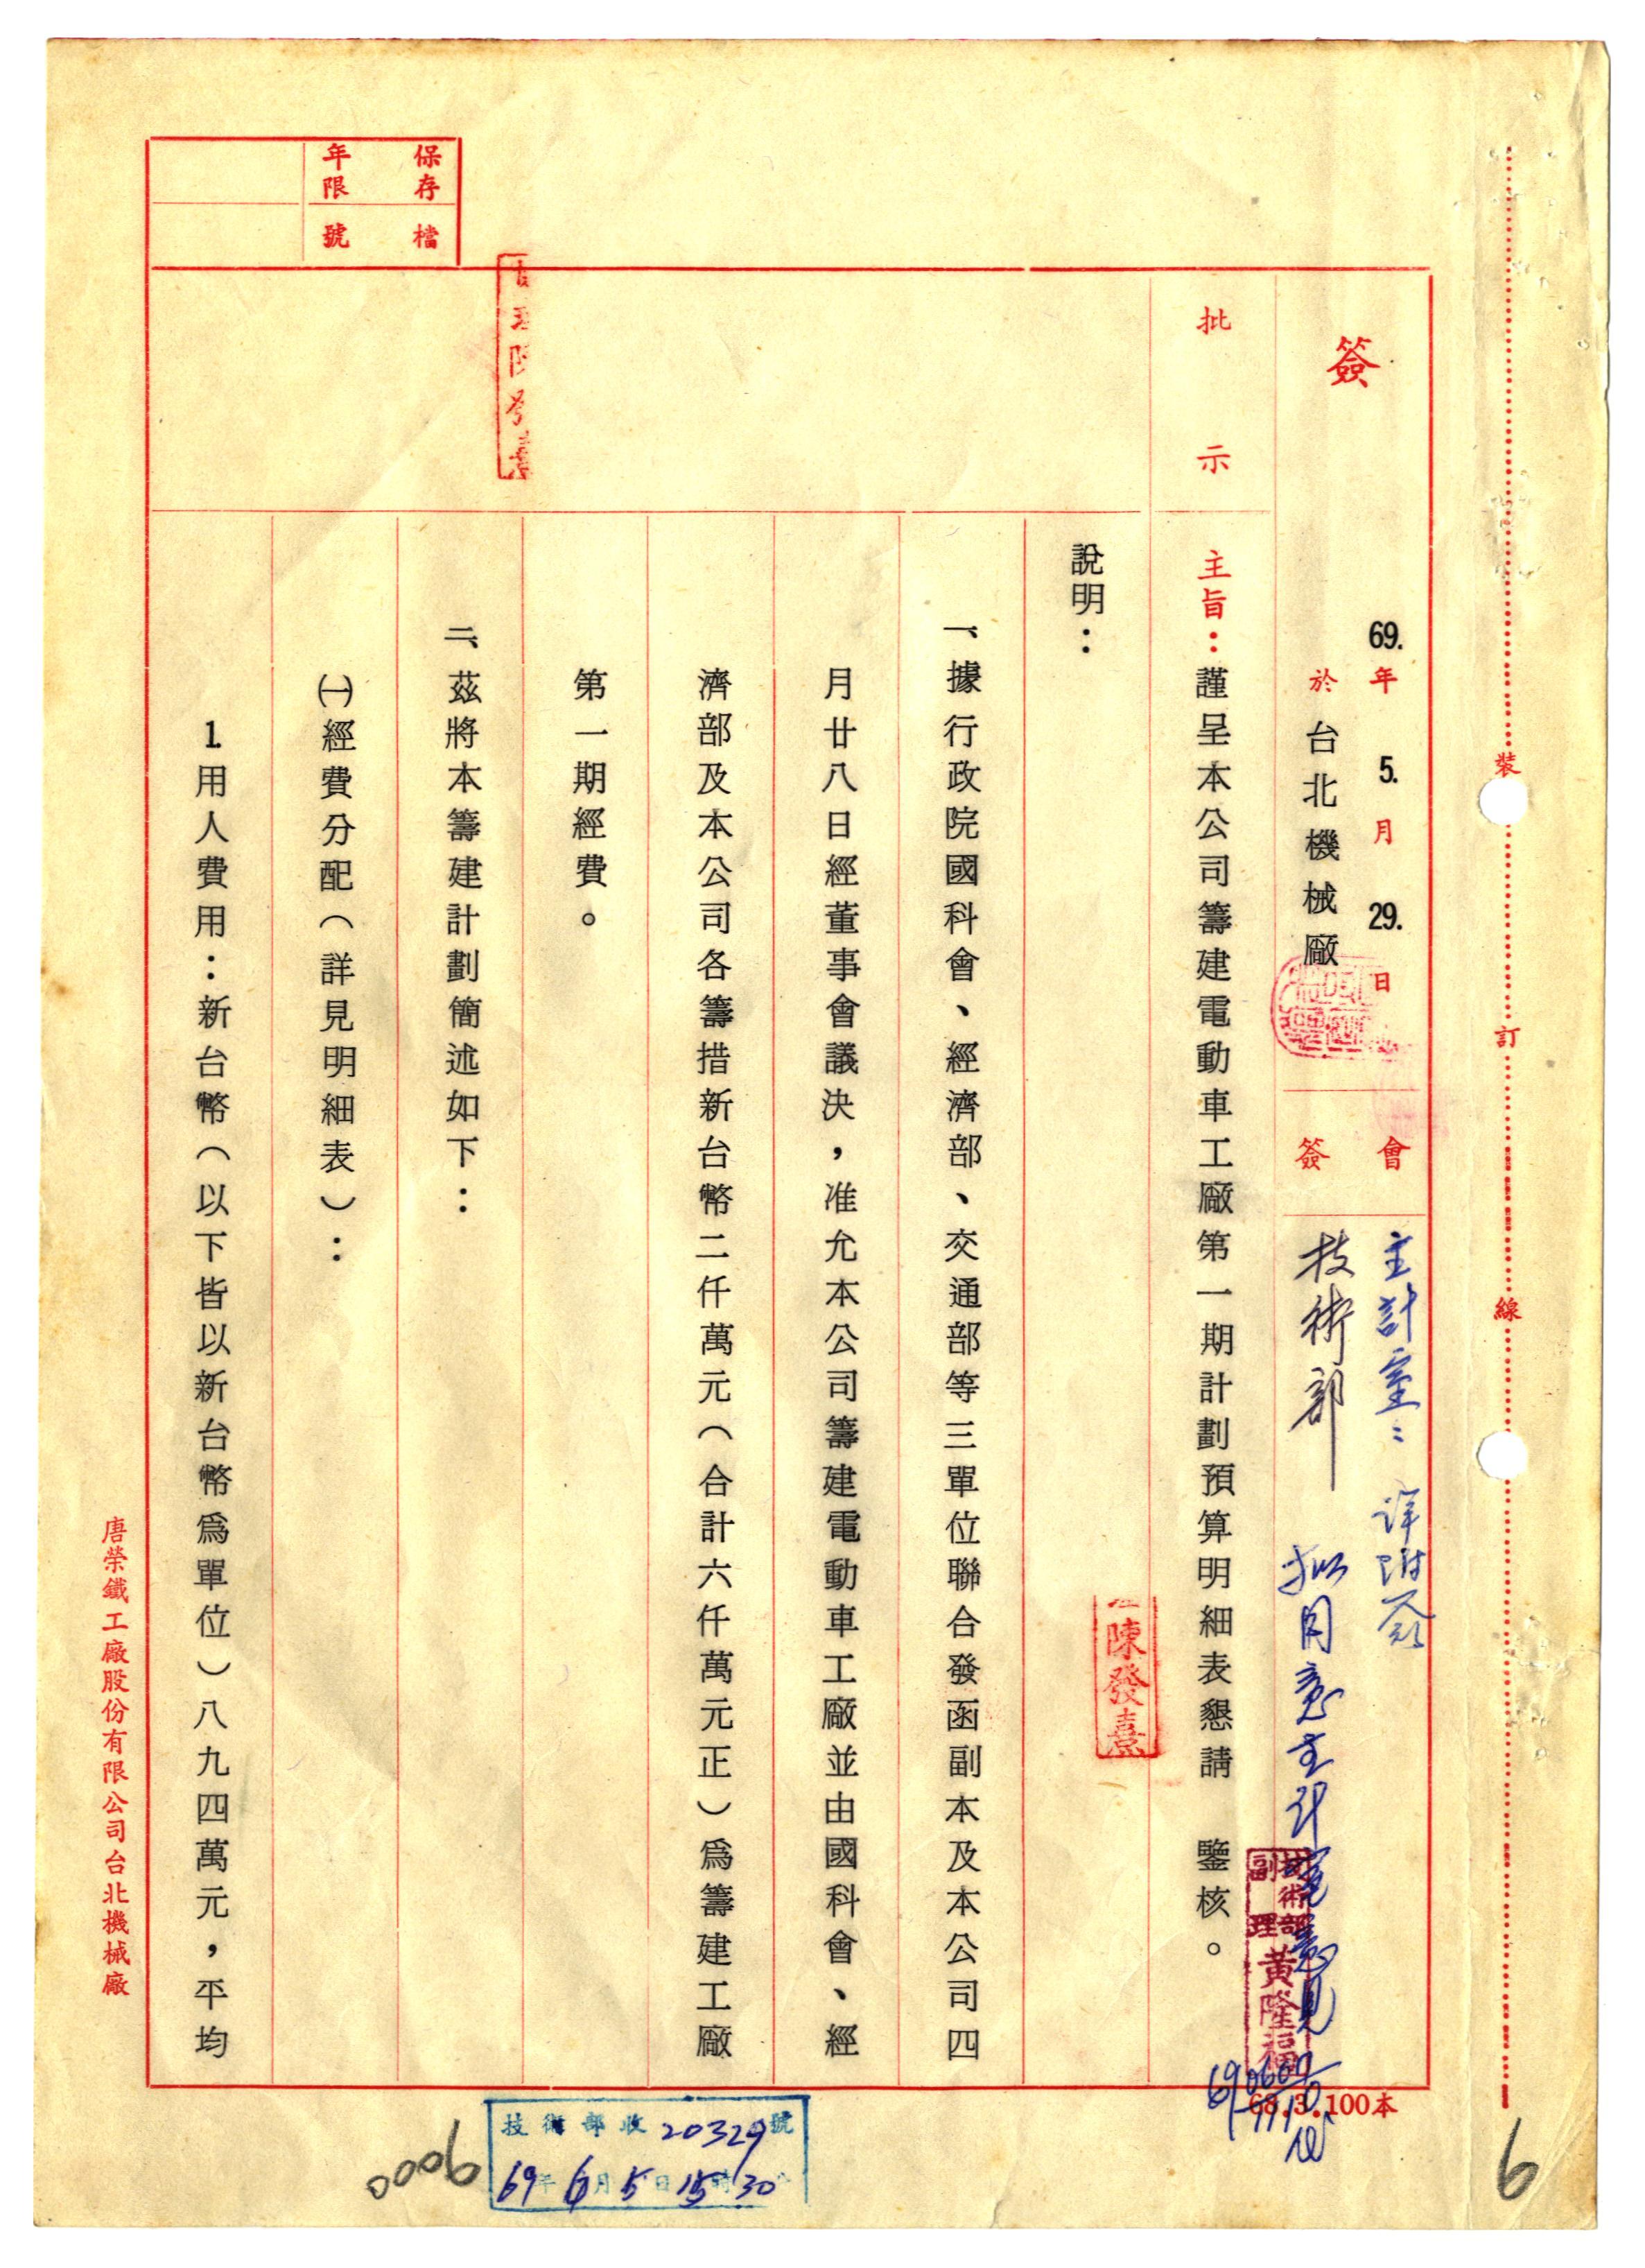 裝訂線
簽
69.年5.月29.日
於台北機械廠
會簽
主計室：詳附簽
技術部 擬同意主計室意見
技術部
副理 黃隆福
批示
主旨：謹呈本公司籌建電動車工廠第一期計劃預算明細表懇請　鑒核。
陳發熹
說明：
一、據行政院國科會、經濟部、交通部等三單位聯合發函副本及本公司四
月廿八日經董事會議決，准允本公司籌建電動車工廠並由國科會、經
濟部及本公司各籌措新台幣二仟萬元（合計六仟萬元正）為籌建工廠
第一期經費。
二、茲將本籌建計劃簡述如下：
㈠經費分配（詳見明細表）：
1.用人費用：新台幣（以下皆以新台幣為單位）八九四萬元，平均
保存年限
檔號
唐榮鐵工廠股份有限公司台北機械廠
68.3.100本
技術部收20329號
69年6月5日15時30分
0006
6